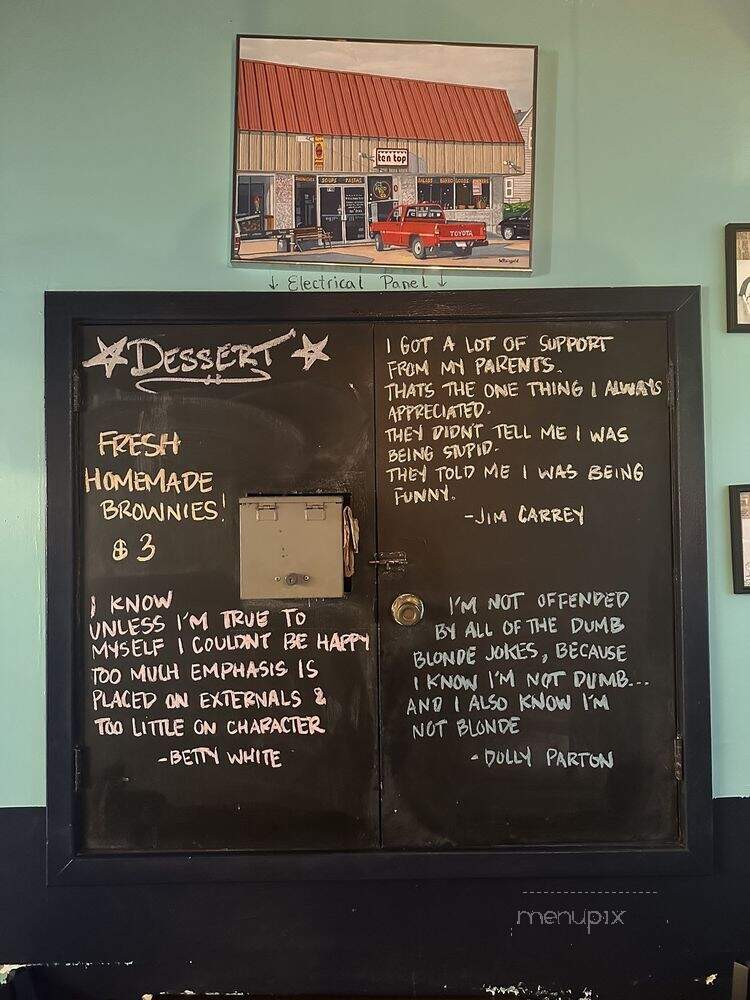 ten top
SOUPS PASTAS
TOYOTA
↓ Electrical Panel ↓
DESSERT
FRESH
HOMEMADE
BROWNIES!
$3
I KNOW
UNLESS I'M TRUE TO
MYSELF I COULDNT BE HAPPY
TOO MUCH EMPHASIS IS
PLACED ON EXTERNALS &
TOO LITTLE ON CHARACTER
-BETTY WHITE
I GOT A LOT OF SUPPORT
FROM MY PARENTS.
THATS THE ONE THING I ALWAYS
APPRECIATED.
THEY DIDNT TELL ME I WAS
BEING STUPID.
THEY TOLD ME I WAS BEING
FUNNY.
-JIM CARREY
I'M NOT OFFENDED
BY ALL OF THE DUMB
BLONDE JOKES, BECAUSE
I KNOW I'M NOT DUMB...
AND I ALSO KNOW I'M
NOT BLONDE
- DOLLY PARTON
menupix